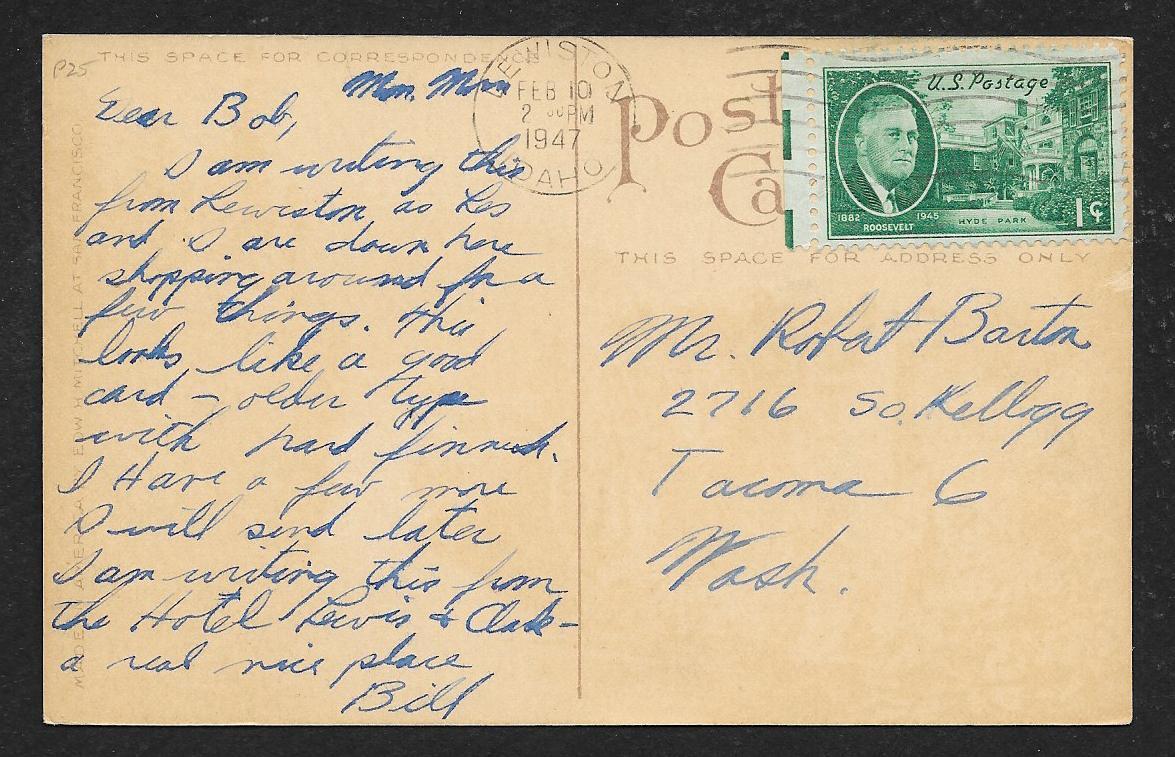 THIS SPACE FOR CORRESPONDENCE
P25
Mon. Morn
Dear Bob,
I am writing this
from Lewiston as Les
and I are down here
shopping around for a
few things. This
looks like a good
card – older type
with hard finnish.
I Have a few more
I will send later
I am writing this from
the Hotel Lewis & Clark –
a real nice place
Bill
MADE IN AMERICA BY EDW H MITCHELL AT SAN FRANCISCO
LEWISTON
FEB 10
2 00 PM
1947
IDAHO
Post
Ca
U.S. Postage
1882
1945
ROOSEVELT
HYDE PARK
1¢
THIS SPACE FOR ADDRESS ONLY
Mr. Robert Barton
2716 So. Kellogg
Tacoma 6
Wash.